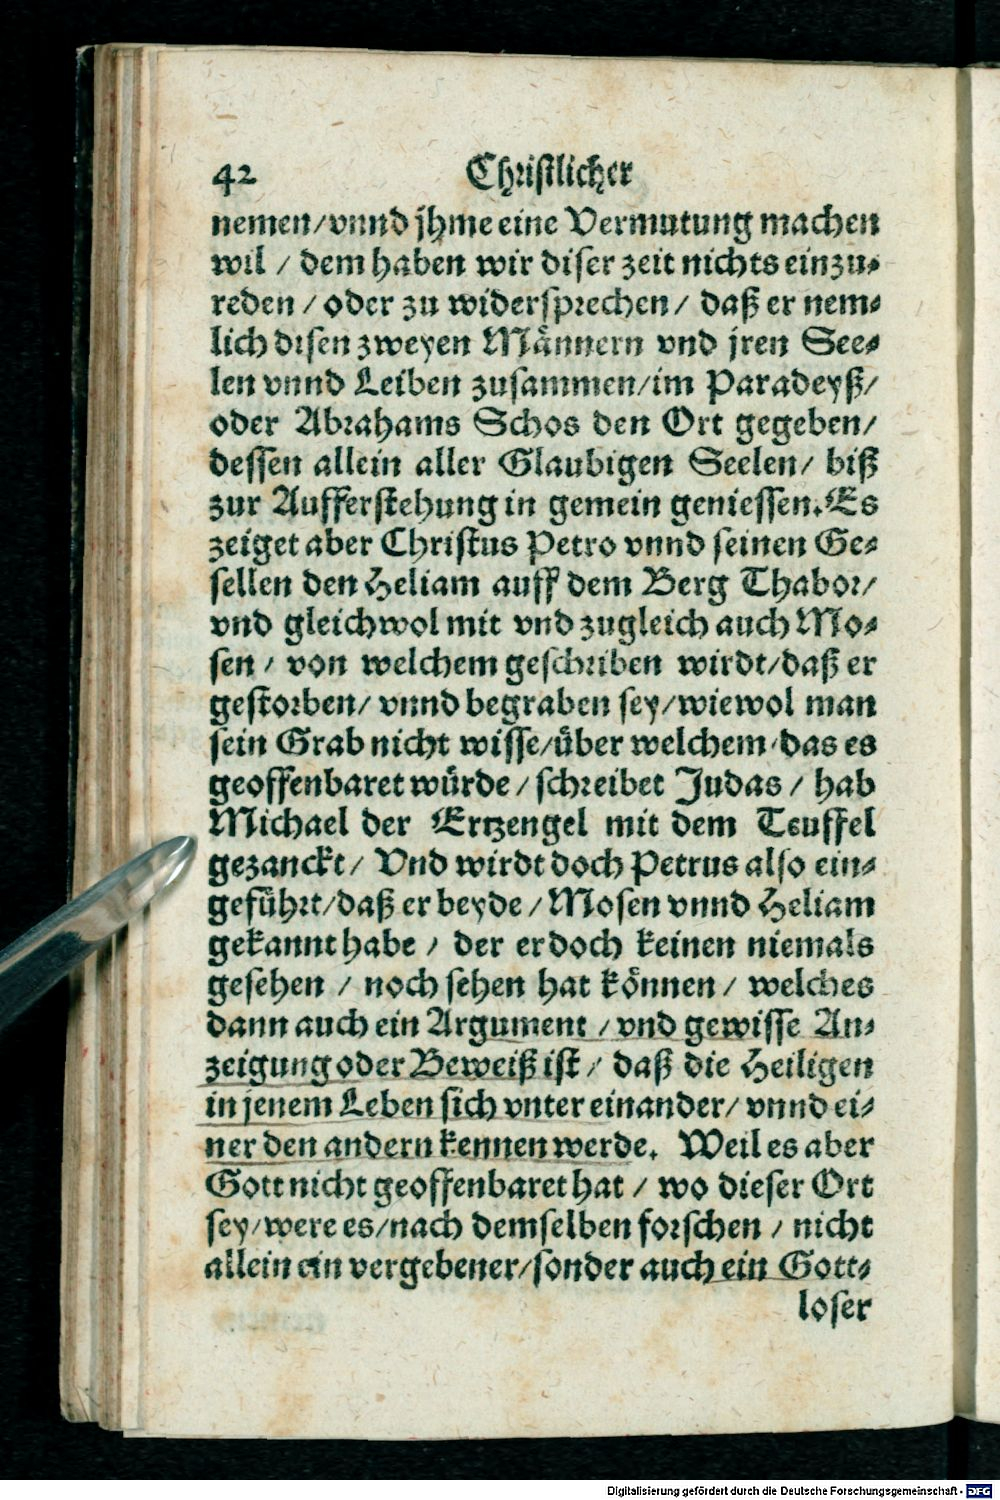 42 Christlicher
nemen/vnnd jhme eine Vermutung machen
wil / dem haben wir diser zeit nichts einzu-
reden / oder zu widersprechen / daß er nem-
lich disen zweyen Männern vnd jren See-
len vnnd Leiben zusammen/im Paradeyß/
oder Abrahams Schos den Ort gegeben/
dessen allein aller Glaubigen Seelen/ biß
zur Aufferstehung in gemein geniessen. Es
zeiget aber Christus Petro vnnd seinen Ge-
sellen den Heliam auff dem Berg Thabor/
vnd gleichwol mit vnd zugleich auch Mo-
sen / von welchem geschriben wirdt/daß er
gestorben/ vnnd begraben sey/wiewol man
sein Grab nicht wisse/über welchem/das es
geoffenbaret würde / schreibet Judas / hab
Michael der Ertzengel mit dem Teuffel
gezanckt/ Vnd wirdt doch Petrus also ein-
geführt/daß er beyde / Mosen vnnd Heliam
gekannt habe / der er doch keinen niemals
gesehen / noch sehen hat können / welches
dann auch ein Argument / vnd gewisse An-
zeigung oder Beweiß ist / daß die Heiligen
in jenem Leben sich vnter einander/ vnnd ei-
ner den andern kennen werde. Weil es aber
Gott nicht geoffenbaret hat / wo dieser Ort
sey/were es/nach demselben forschen / nicht
allein ein vergebener/sonder auch ein Gott-
loser
Digitalisierung gefördert durch die Deutsche Forschungsgemeinschaft - DFG